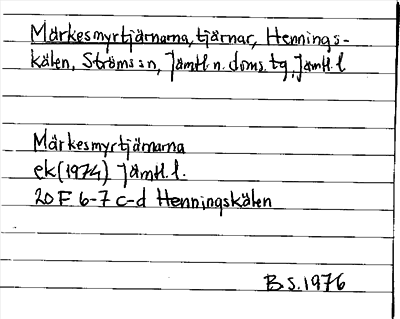 Märkesmyrtjärnarna, tjärnar, Hennings-
kälen, Ströms sn, Jämtl n. doms. tg, Jämtl. l
Märkesmyrtjärnarna
ek (1974) Jämtl. l.
20 F 6-7 c-d Henningskälen
B S. 1976